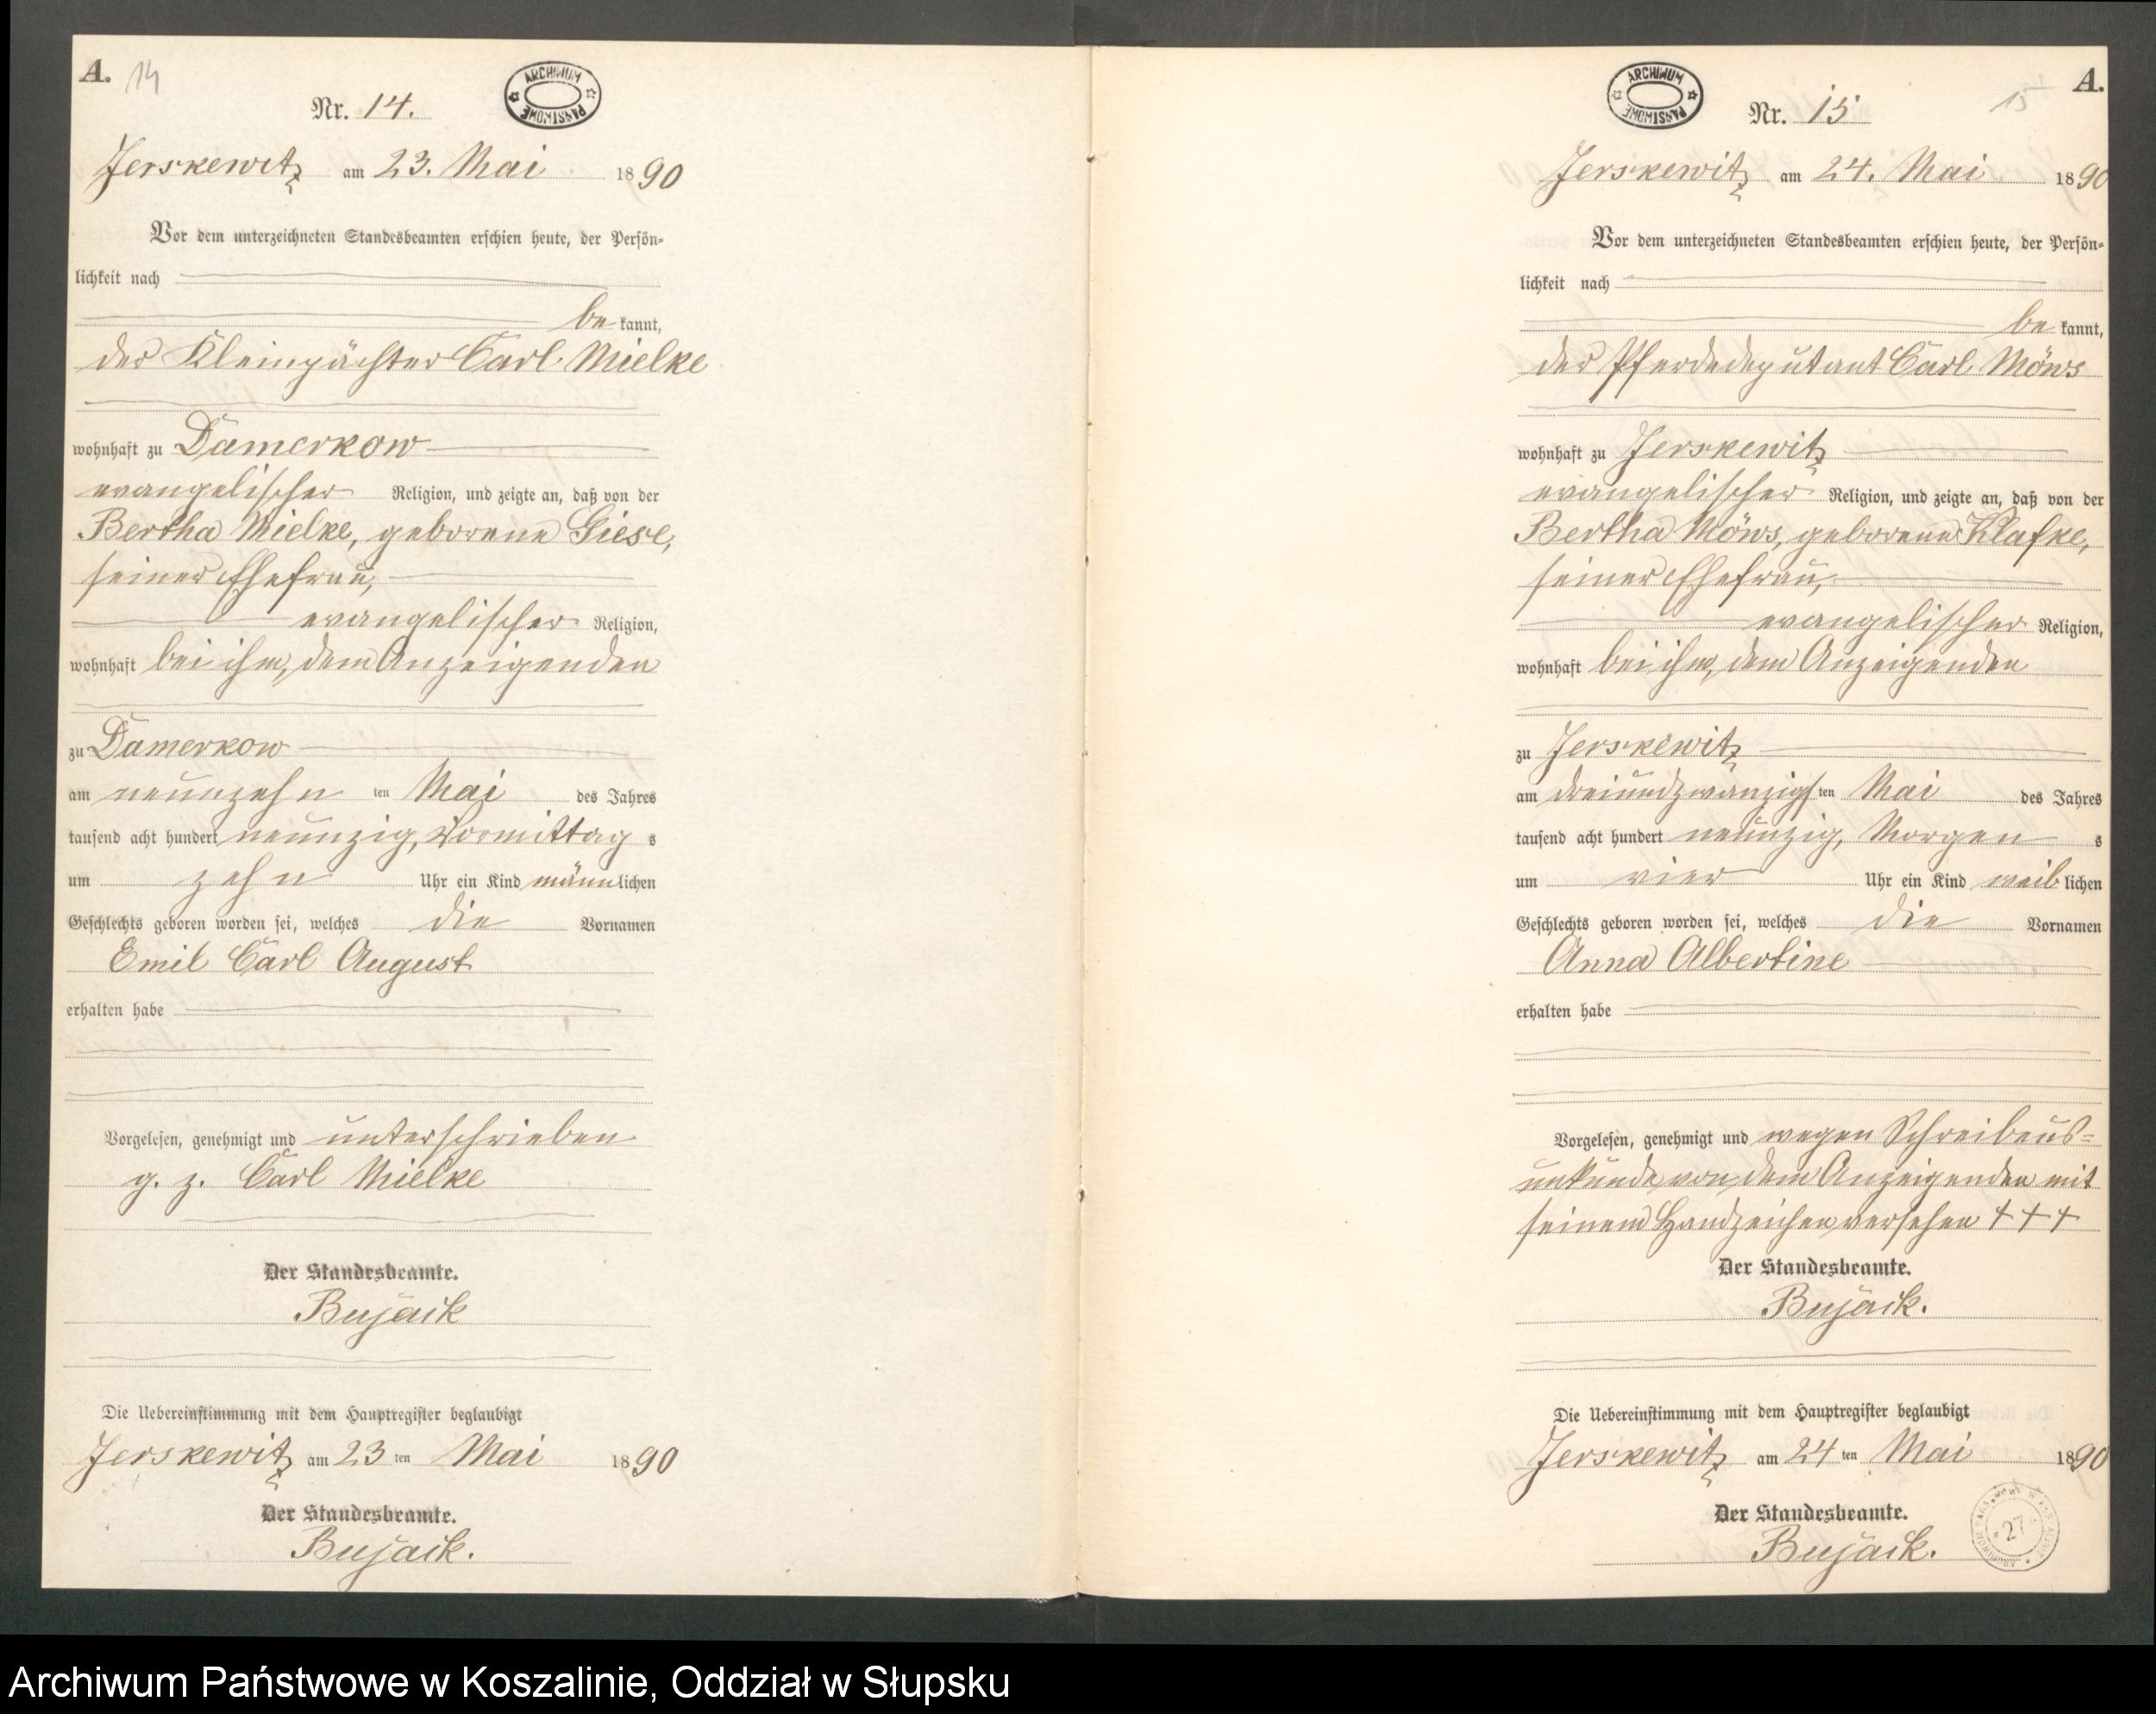 A. 14
ARCHIWUM PAŃSTWOWE
Nr. 14.
Jerskewitz am 23. Mai 1890
Vor dem unterzeichneten Standesbeamten erschien heute, der Persön-
lichkeit nach
be kannt,
der Kleinpächter Carl Mielke
wohnhaft zu Damerkow
evangelischer Religion, und zeigte an, daß von der
Bertha Mielke, geborene Giese,
seiner Ehefrau,
evangelischer Religion,
wohnhaft bei ihm, dem Anzeigenden
zu Damerkow
am neunzehn ten Mai des Jahres
tausend acht hundert neunzig, Vormittag s
um zehn Uhr ein Kind männlichen
Geschlechts geboren worden sei, welches die Vornamen
Emil Carl August
erhalten habe
Vorgelesen, genehmigt und unterschrieben
g. z. Carl Mielke
Der Standesbeamte.
Bujack
Die Uebereinstimmung mit dem Hauptregister beglaubigt
Jerskewitz am 23 ten Mai 1890
Der Standesbeamte.
Bujack.
A.
15
ARCHIWUM PAŃSTWOWE
Nr. 15
Jerskewitz am 24. Mai 1890
Vor dem unterzeichneten Standesbeamten erschien heute, der Persön-
lichkeit nach
be kannt,
der Pferdedeputant Carl Möws
wohnhaft zu Jerskewitz
evangelischer Religion, und zeigte an, daß von der
Bertha Möws, geborene Klafke,
seiner Ehefrau,
evangelischer Religion,
wohnhaft bei ihm, dem Anzeigenden
zu Jerskewitz
am dreiundzwanzigsten Mai des Jahres
tausend acht hundert neunzig, Morgen s
um vier Uhr ein Kind weiblichen
Geschlechts geboren worden sei, welches die Vornamen
Anna Albertine
erhalten habe
Vorgelesen, genehmigt und wegen Schreibens-
unkunde von dem Anzeigenden mit
seinem Handzeichen versehen +++
Der Standesbeamte.
Bujack.
Die Uebereinstimmung mit dem Hauptregister beglaubigt
Jerskewitz am 24 ten Mai 1890
Der Standesbeamte.
Bujack.
27
Archiwum Państwowe w Koszalinie, Oddział w Słupsku